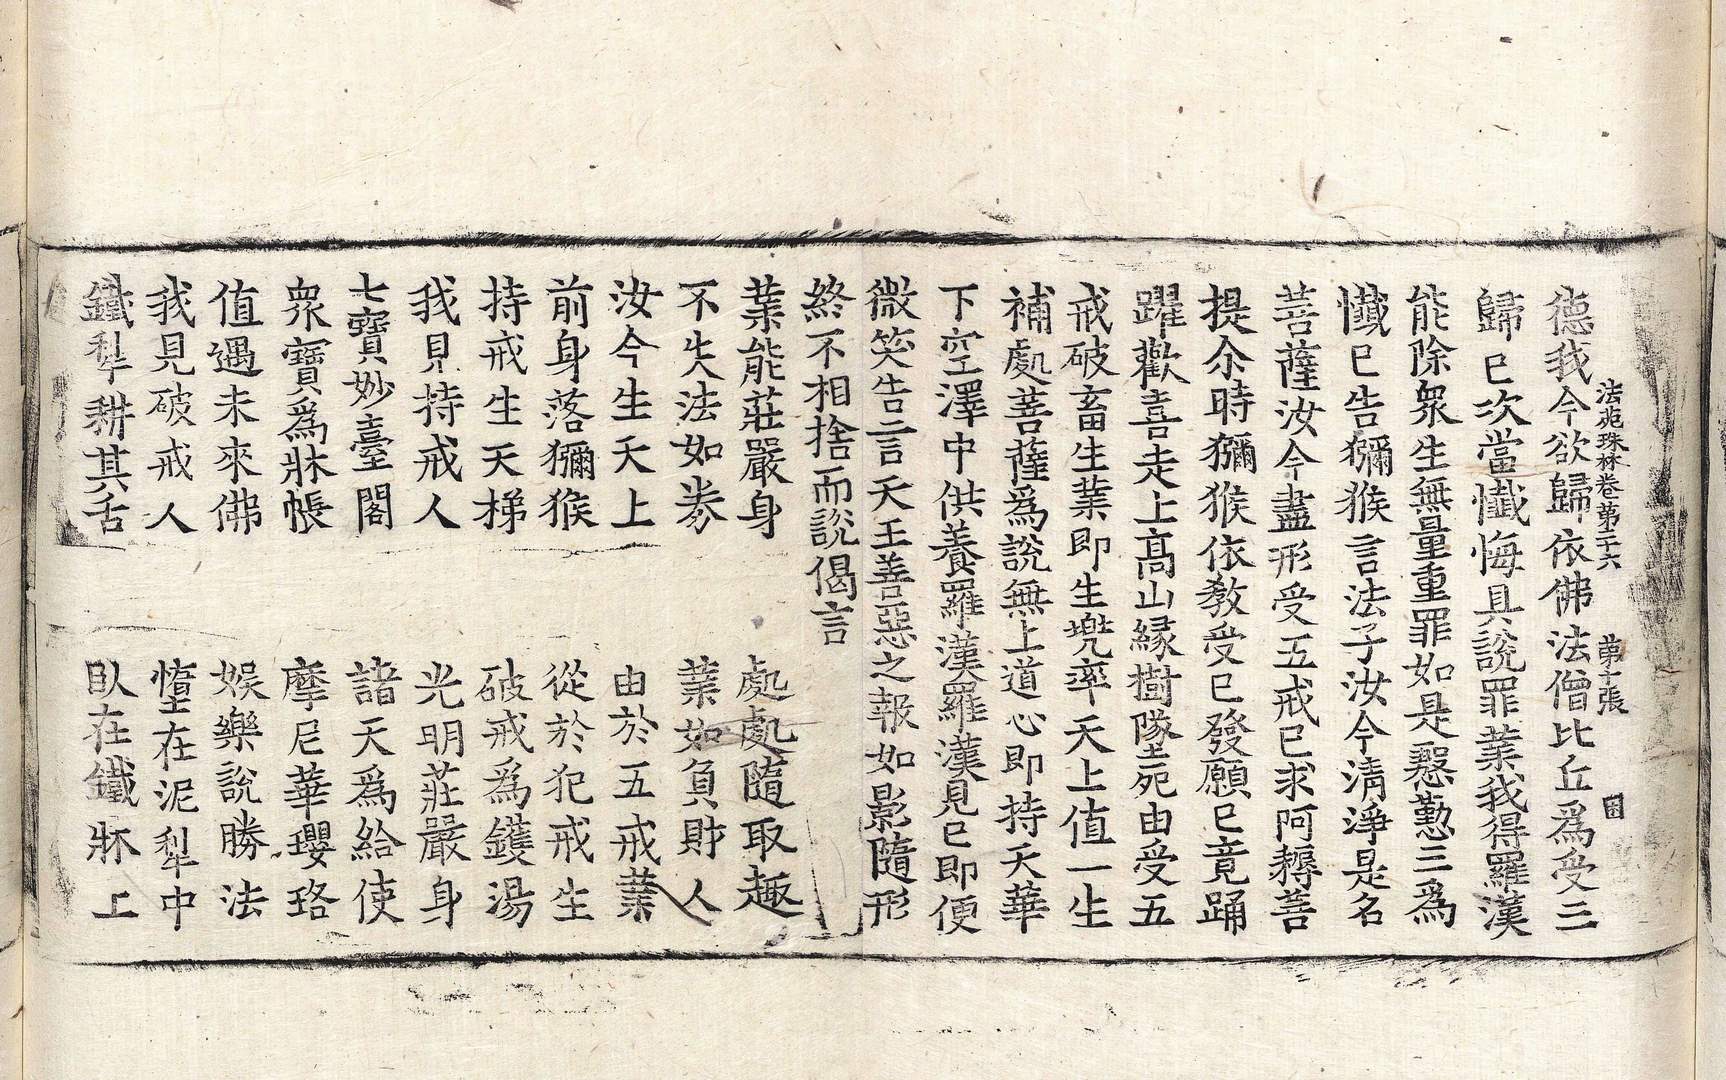 法苑珠林卷第二十六 第十張 圖
德我今欲歸依佛法僧比丘爲受三
歸已次當懺悔具說罪業我得羅漢
能除衆生無量重罪如是慇懃三爲
懺已告獼猴言法子汝今清淨是名
菩薩汝今盡形受五戒已求阿耨菩
提尒時獼猴依教受已發願已竟踊
躍歡喜走上高山緣樹墜死由受五
戒破畜生業即生兜率天上值一生
補處菩薩爲說無上道心即持天華
下空澤中供養羅漢羅漢見已即便
微笑告言天王善惡之報如影隨形
終不相捨而說偈言
業能莊嚴身 處處隨取趣
不失法如券 業如負財人
汝今生天上 由於五戒業
前身落獼猴 從於犯戒生
持戒生天梯 破戒爲鑊湯
我見持戒人 光明莊嚴身
七寶妙臺閣 諸天爲給使
衆寶爲牀帳 摩尼華瓔珞
值遇未來佛 娛樂說勝法
我見破戒人 墮在泥犁中
鐵犁耕其舌 臥在鐵牀上